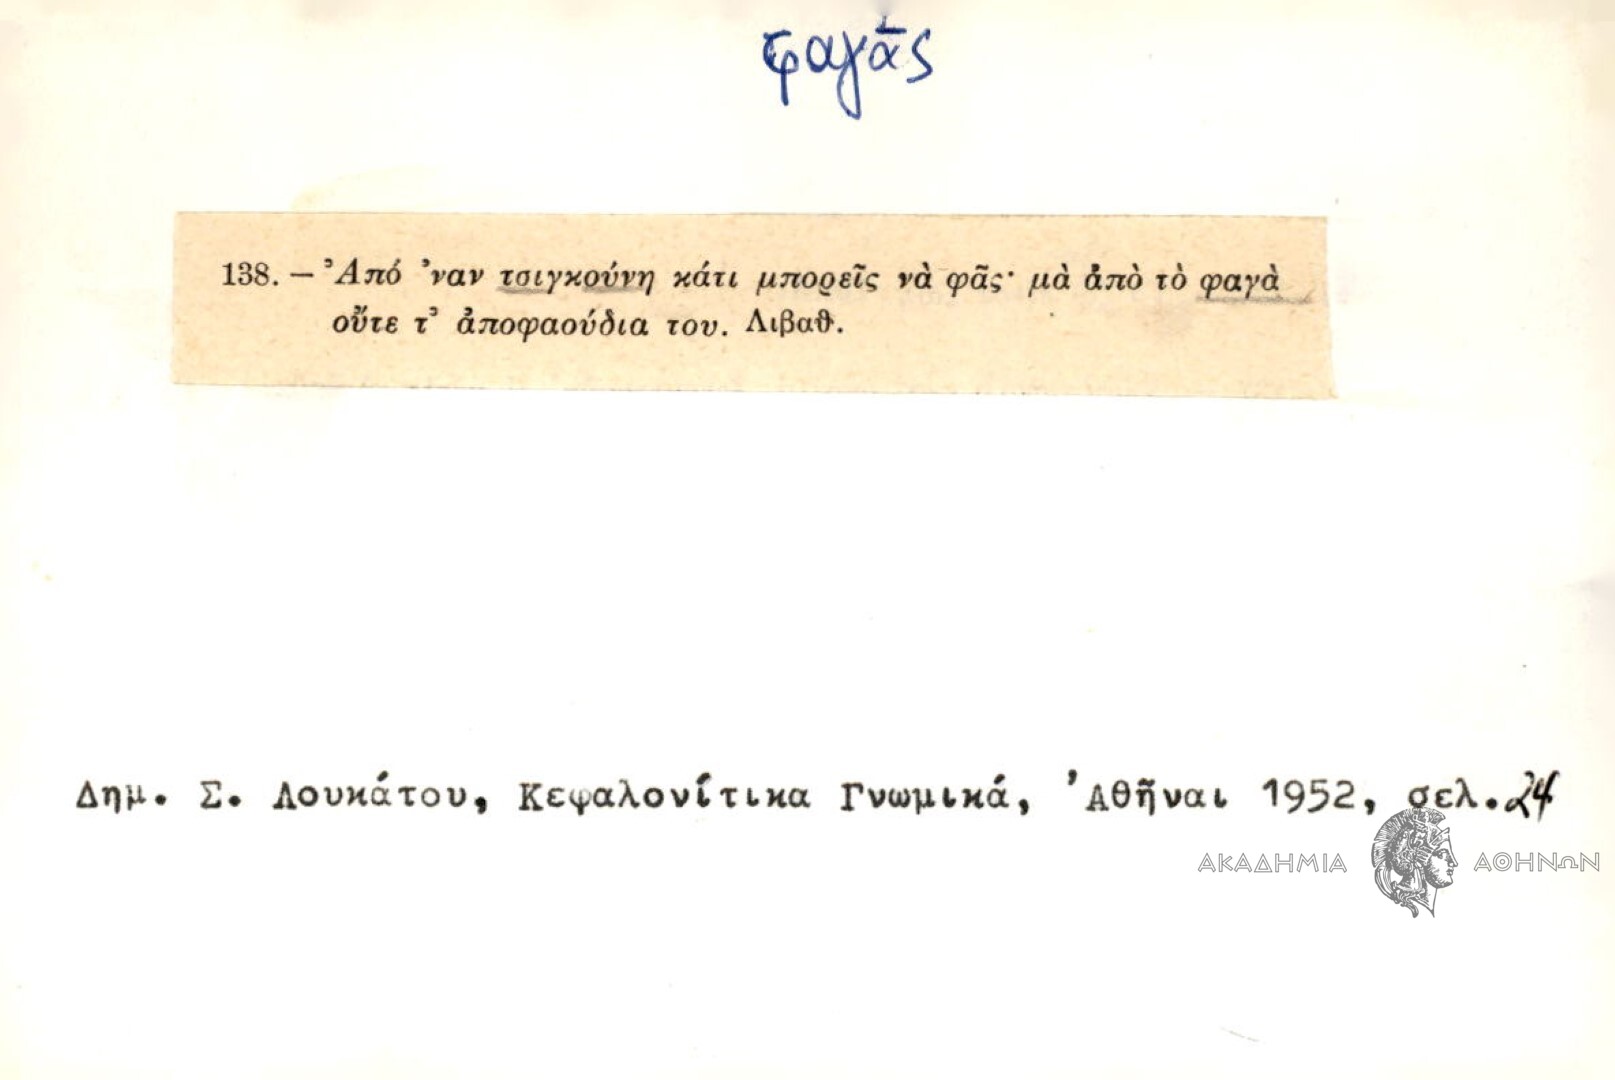 φαγᾶς
138. — Ἀπό ᾿ναν τσιγκούνη κάτι μπορεῖς νὰ φᾶς· μὰ ἀπὸ τὸ φαγὰ
οὔτε τ᾿ ἀποφαούδια του. Λιβαθ.
Δημ. Σ. Λουκάτου, Κεφαλονίτικα Γνωμικά, Ἀθῆναι 1952, σελ. 24
ΑΚΑΔΗΜΙΑ ΑΘΗΝΩΝ